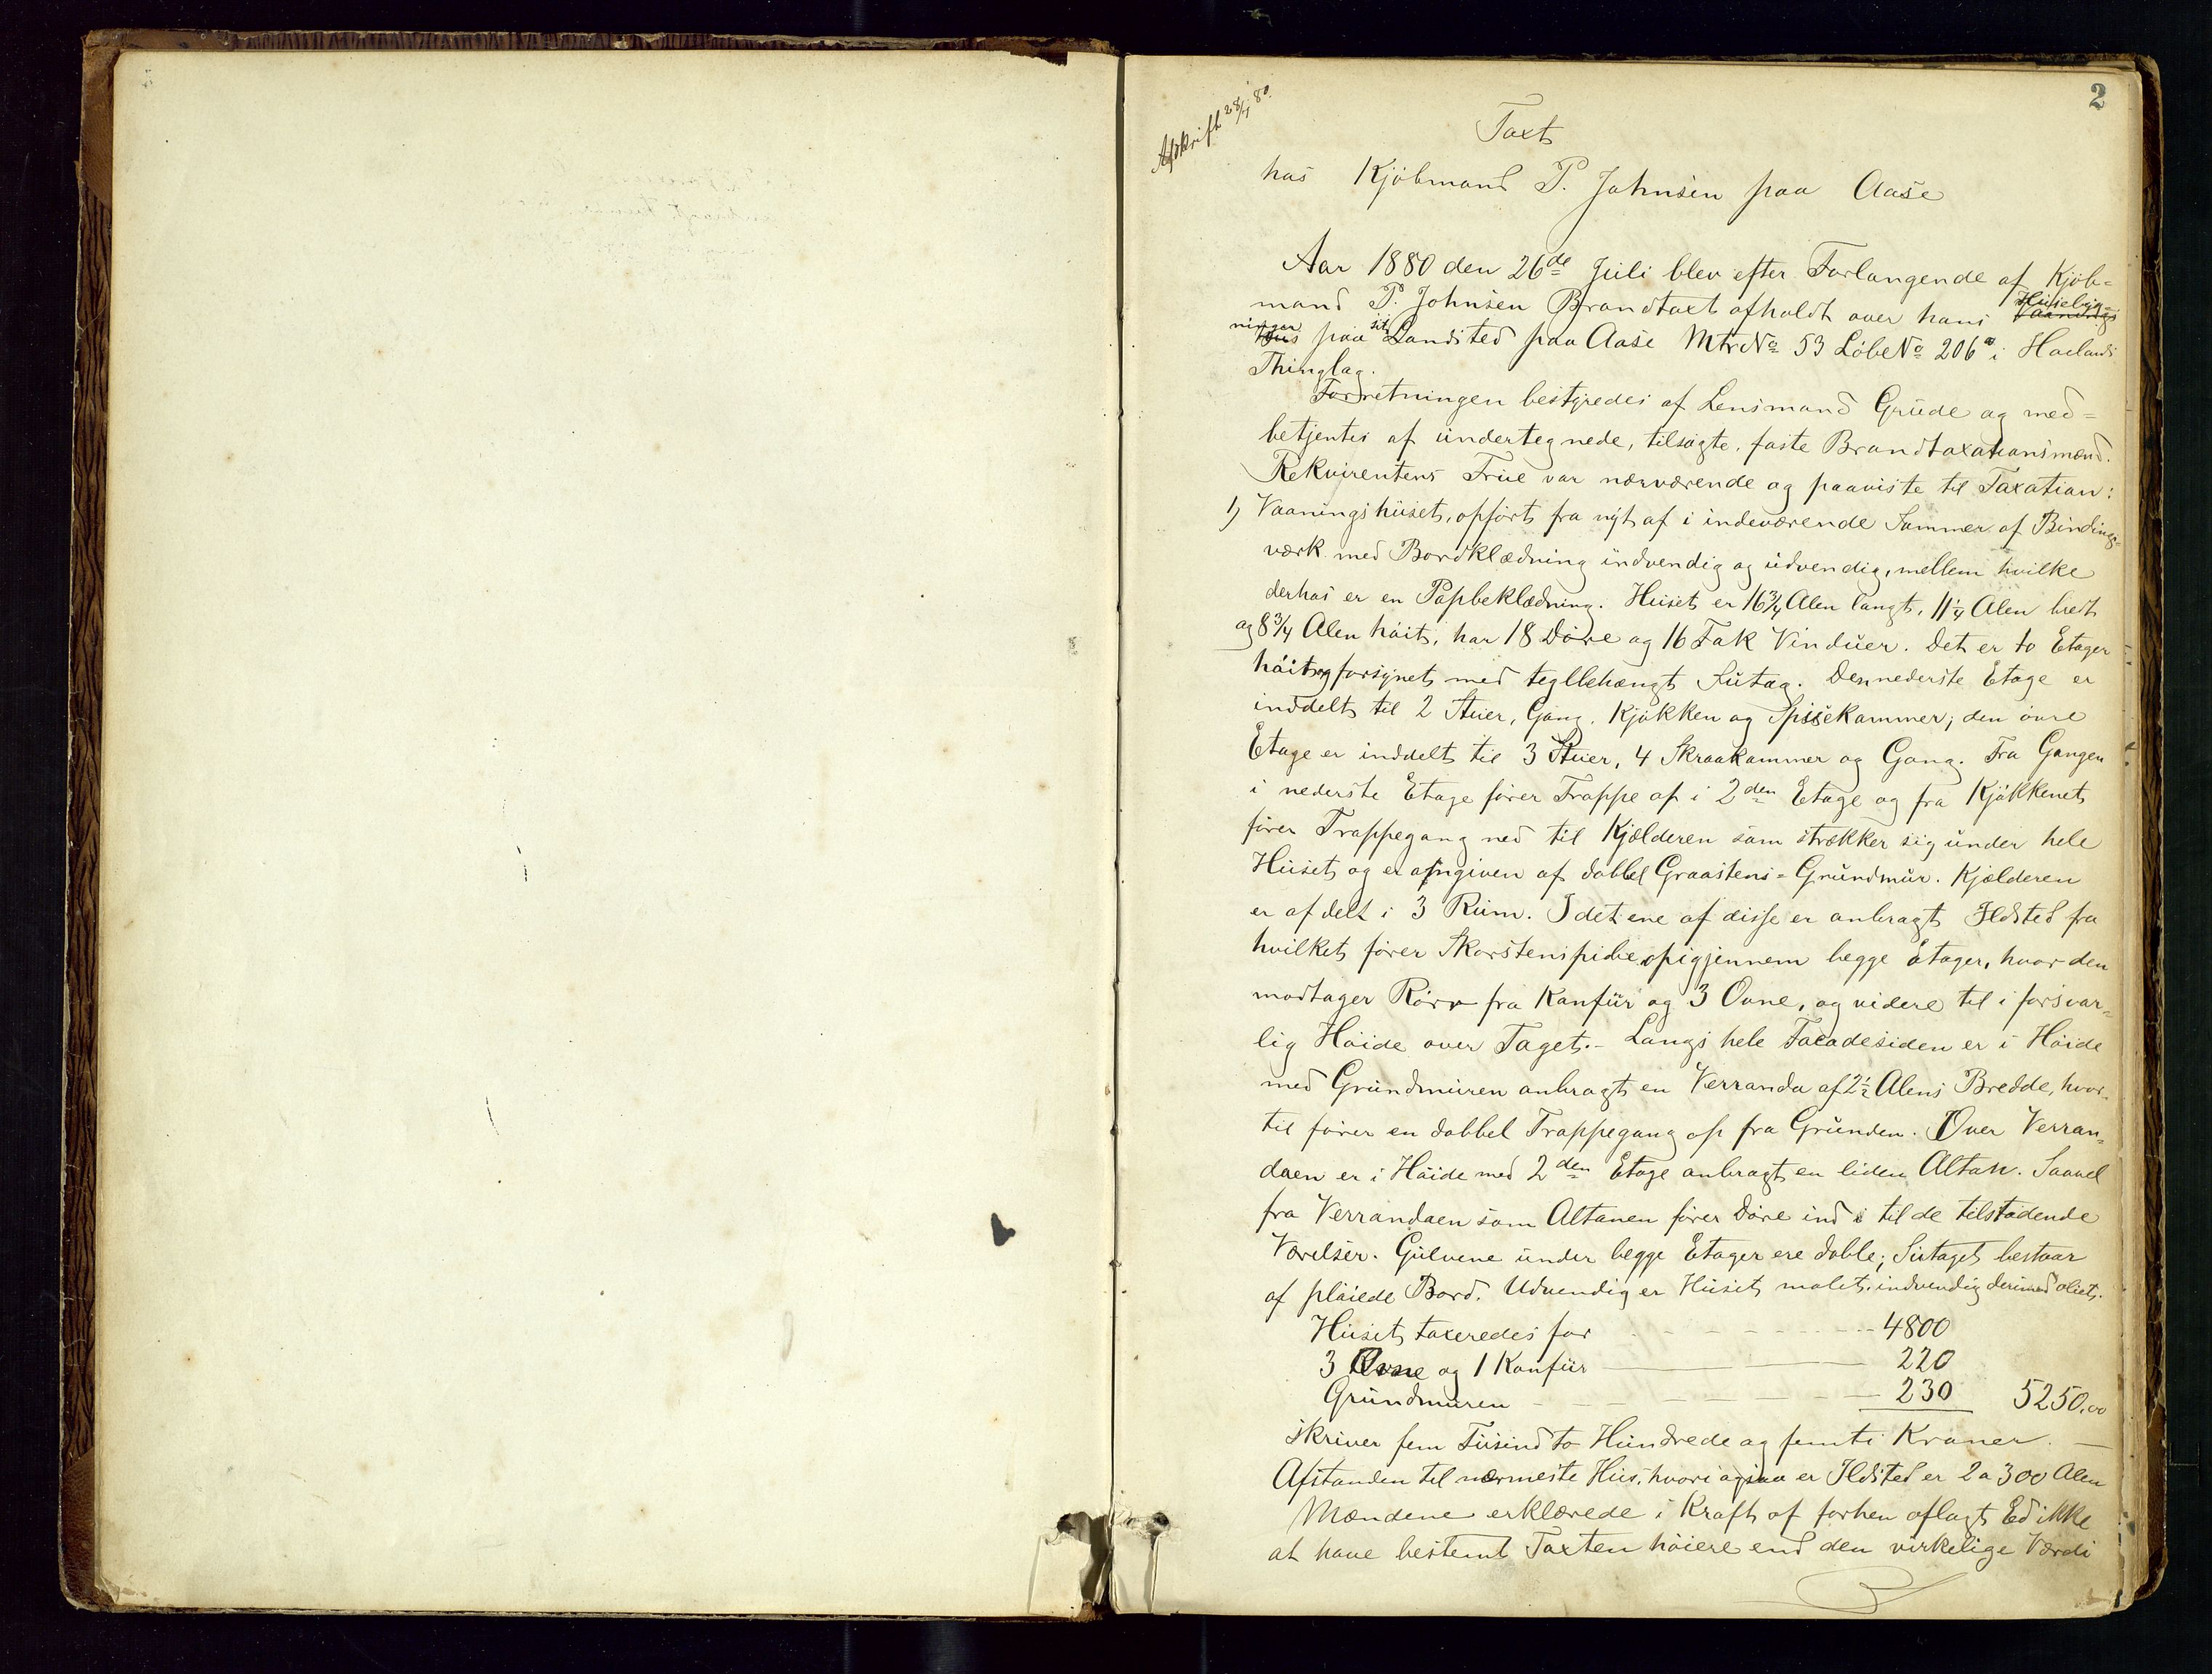 2
Afskrift 28/7 80.
Taxt
hos Kjöbmand P. Johnsen paa Aase
Aar 1880 den 26de Juli blev efter Forlangende af Kjöb-
mand P. Johnsen Brandtaxt afholdt over hans Vaanings Huusbyg-
hus ninger paa sit Landsted paa Aase Mtr No 53 LöbeNo 206a i Haalands
Thinglag.
Forretningen bestyredes af Lensmand Grude og med-
betjentes af undertegnede, tilsagte, faste Brandtaxationsmænd.
Rekvirentens Frue var nærværende og paaviste til Taxation:
1) Vaaningshuset, opfört fra nyt af i indeværende Sommer af Bindings-
værk med Bordklædning indvendig og udvendig, mellem hvilke
derhos er en Papbeklædning. Huset er 16 3/4 Alen langt, 11 1/4 Alen bredt
og 8 3/4 Alen höit, har 18 Döre og 16 Fak Vinduer. Det er to Etager
höit og forsynet med teglbehængt Sutag. Den nederste Etage er
inddelt til 2 Stuer, Gang, Kjökken og Spisekammer; den övre
Etage er inddelt til 3 Stuer, 4 Skraakammer og Gang. Fra Gangen
i nederste Etage förer Trappe op i 2den Etage og fra Kjökkenet
förer Trappegang ned til Kjælderen som strækker sig under hele
Huset og er omgiven af dobbel Graastens-Grundmur. Kjælderen
er afdelt i 3 Rum. I det ene af disse er anbragt Ildsted fra
hvilket förer Skorstenspibe op igjennem begge Etager, hvor den
modtager Rör fra Komfur og 3 Ovne, og videre til i forsvar-
lig Höide over Taget. - Langs hele Facadesiden er i Höide
med Grundmuren anbragt en Verranda af 2 1/2 Alens Bredde, hvor-
til förer en dobbel Trappegang op fra Grunden. Over Verran-
daen er i Höide med 2den Etage anbragt en liden Altan. Saavel
fra Verrandaen som Altanen förer Döre ind til de tilstödende
Værelser. Gulvene under begge Etager ere doble; Sutaget bestaar
af plöiede Bord. Udvendig er Huset malet, indvendig derimod oliet.
Huset taxeredes for 4800
3 Ovne og 1 Komfur 220
Grundmuren 230 5250,00
skriver fem Tusind to Hundrede og femti Kroner. -
Afstanden til nærmeste Hus, hvori ogsaa er Ildsted er 2 a 300 Alen
Mændene erklærede i Kraft af forhen aflagt Ed ikke
at have bestemt Taxten höiere end den virkelige Værdi